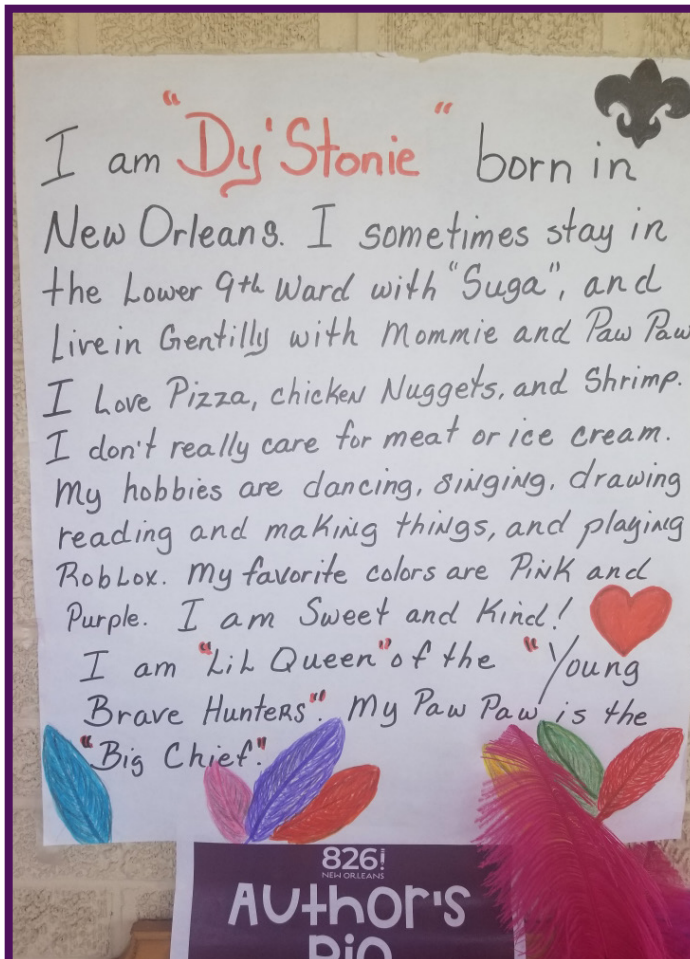 I am "Dy'Stonie" born in
New Orleans. I sometimes stay in
the Lower 9th Ward with "Suga", and
Live in Gentilly with Mommie and Paw Paw
I Love Pizza, chicken Nuggets, and Shrimp.
I don't really care for meat or ice cream.
My hobbies are dancing, singing, drawing
reading and making things, and playing
Roblox. My favorite colors are Pink and
Purple. I am Sweet and Kind!
I am "Lil Queen" of the "Young
Brave Hunters". My Paw Paw is the
"Big Chief."
826!
NEW ORLEANS
Author's
Bio